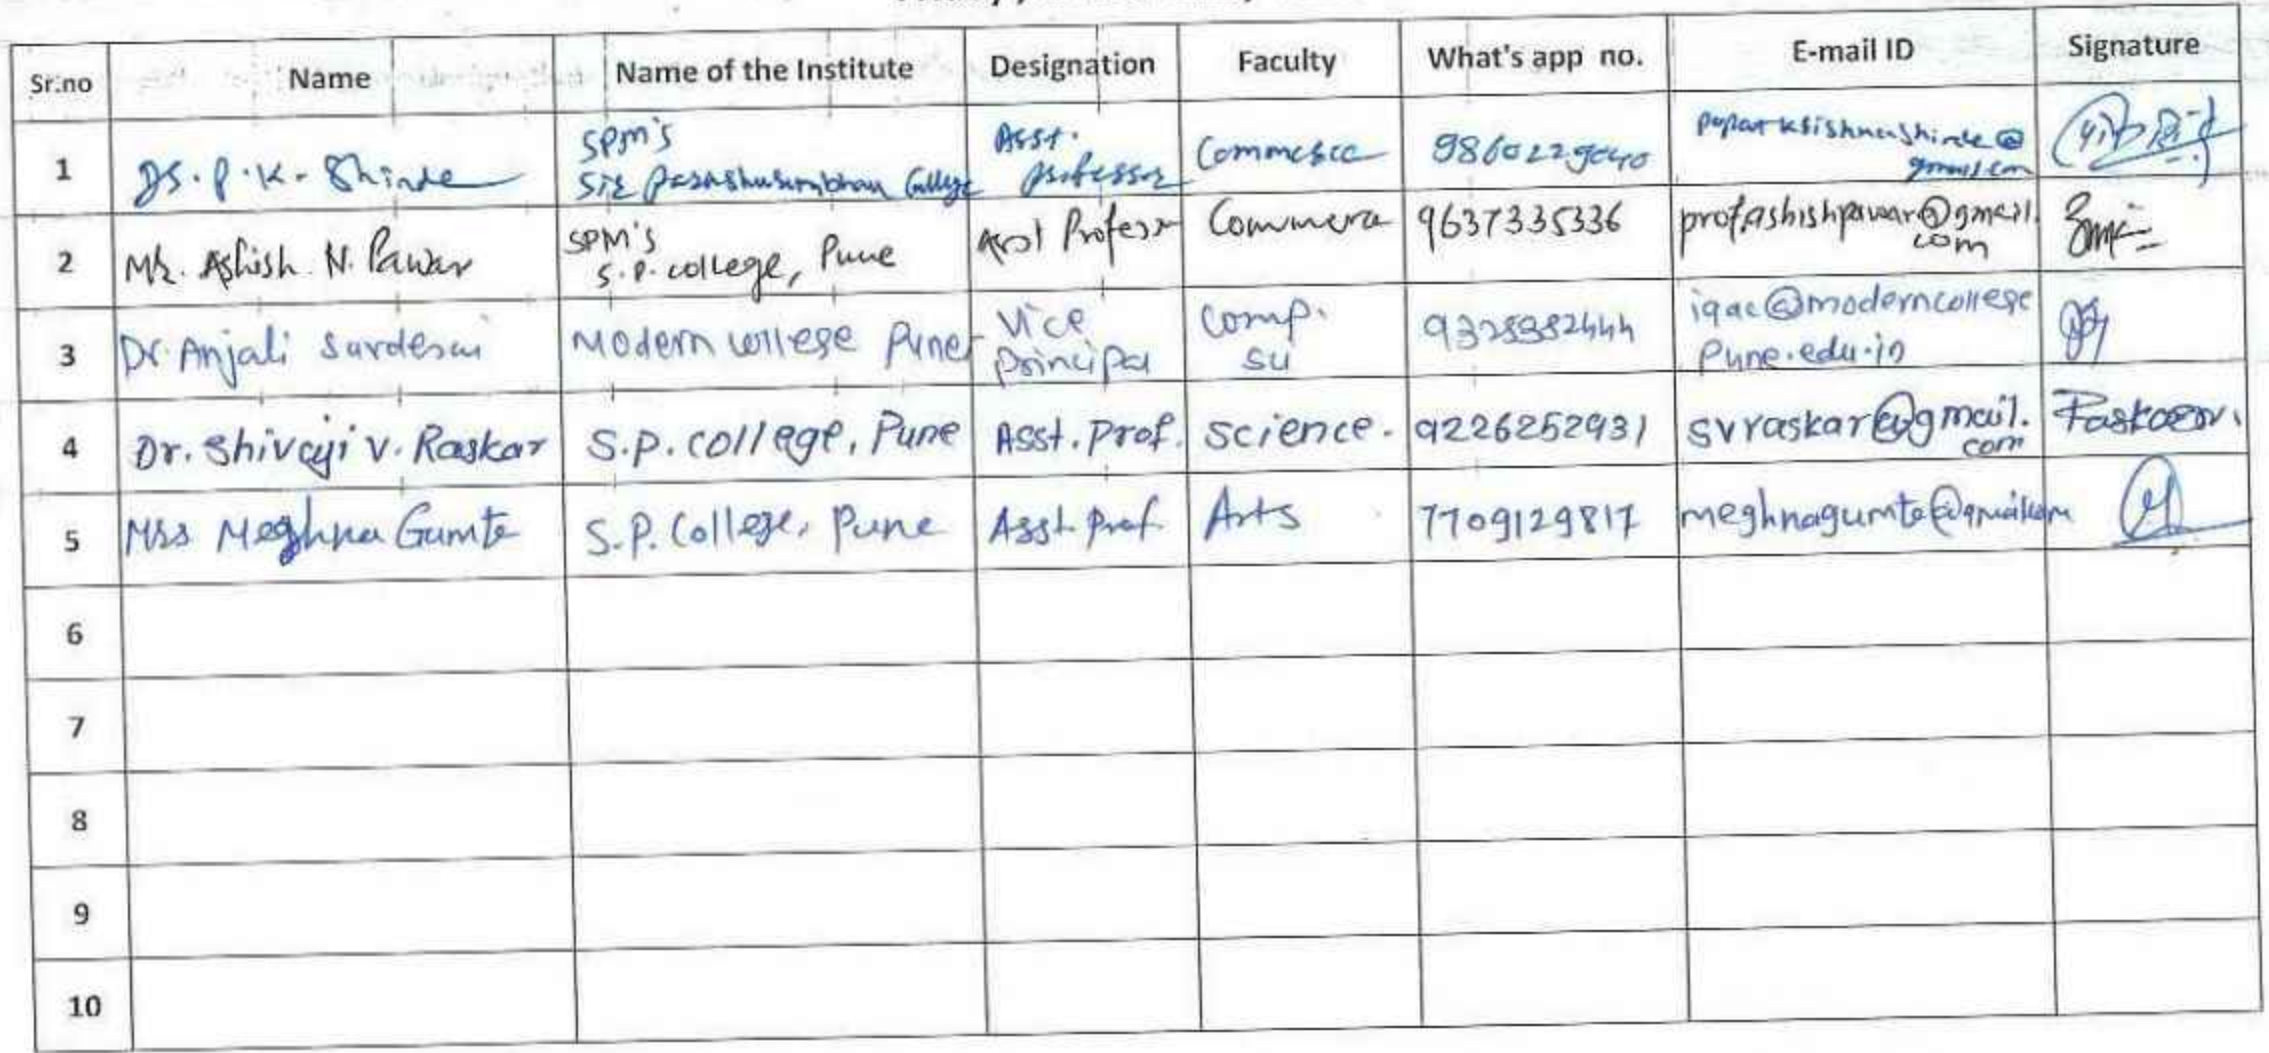 Sr.no Name Name of the Institute Designation Faculty What's app no. E-mail ID Signature
1 Dr. P. K. Shinde SPM's Sir Parashurambhau College Asst. Professor Commerce 9860229040 poparkrishnashinde@gmail.com
2 Mr. Ashish N. Pawar SPM's S.P. college, Pune Asst Professor Commerce 9637335336 prof.ashishpawar@gmail.com
3 Dr. Anjali Sardesai Modern college Pune Vice Principal Comp. Sci iqac@moderncollegepune.edu.in
4 Dr. Shivaji V. Raskar S.P. college, Pune Asst. Prof. Science. 9226252931 svraskar@gmail.com
5 Mrs Meghna Gumte S.P. College, Pune Asst. Prof. Arts 7709129817 meghnagumte@gmail.com
6
7
8
9
10